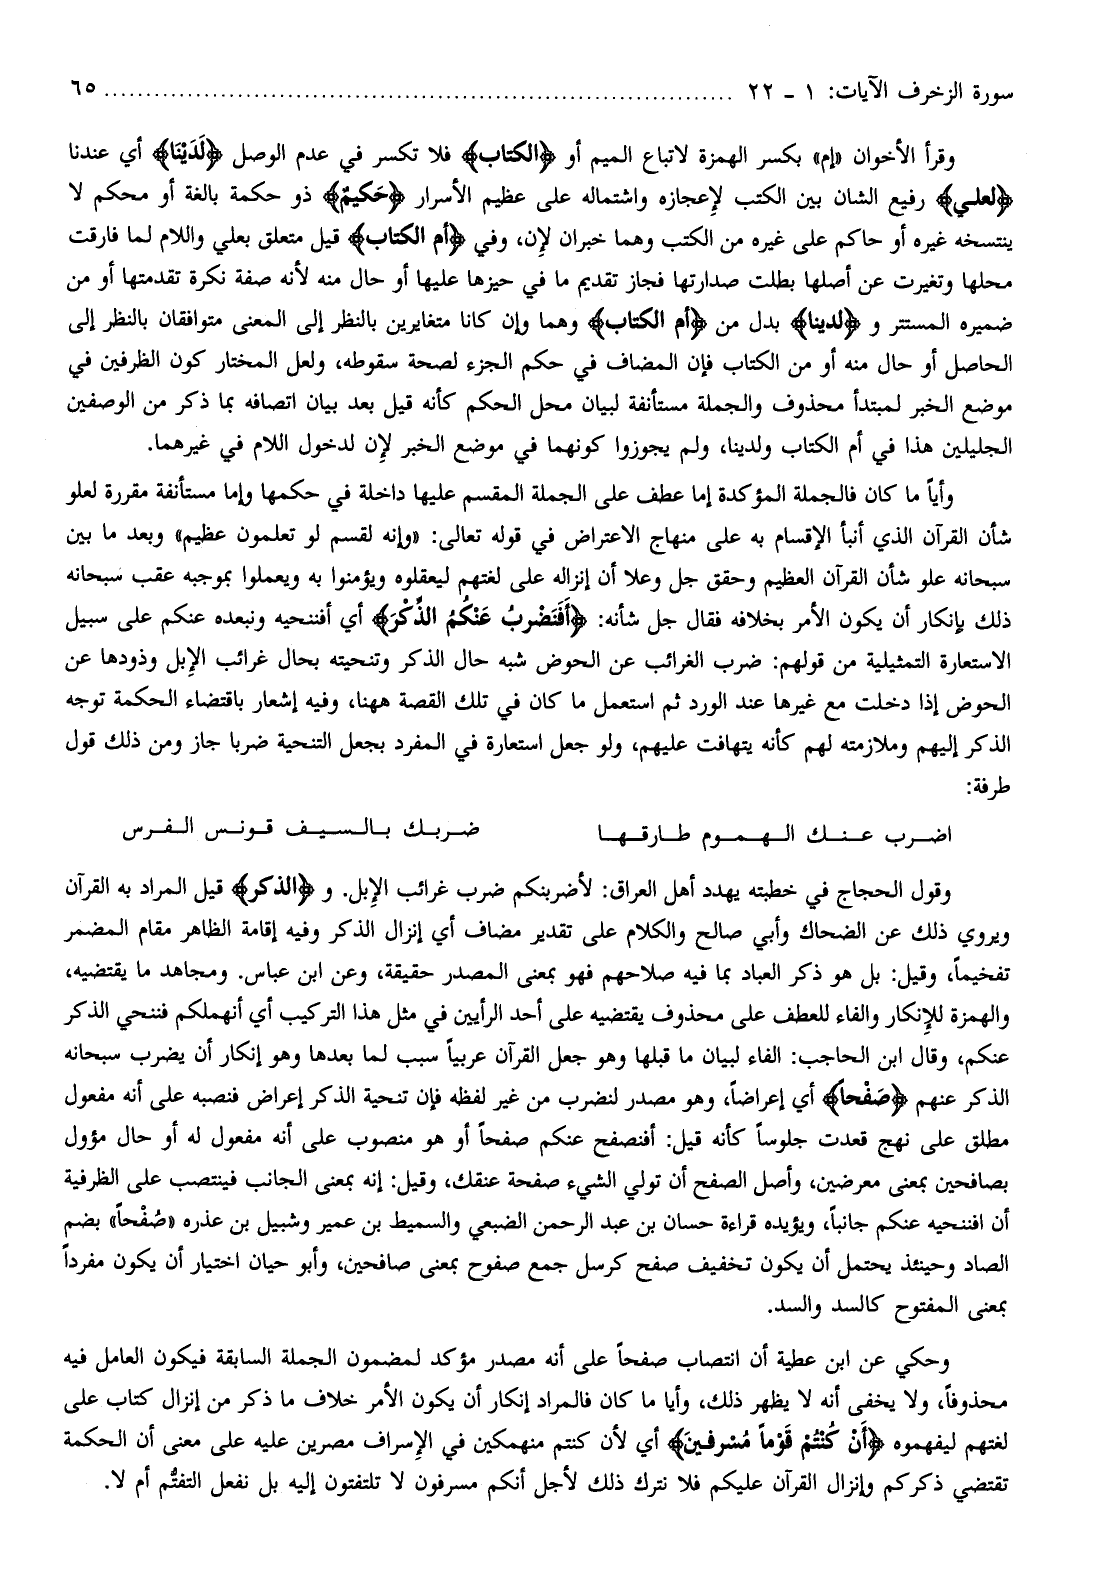 سورة الزخرف الآيات: ١ ـ ٢٢ ........................................................................ ٦٥
وقرأ الأخوان «إم» بكسر الهمزة لاتباع الميم أو ﴿الكتاب﴾ فلا تكسر في عدم الوصل ﴿لَدَيْنَا﴾ أي عندنا
﴿لعلي﴾ رفيع الشان بين الكتب لإعجازه واشتماله على عظيم الأسرار ﴿حَكيمٌ﴾ ذو حكمة بالغة أو محكم لا
ينتسخه غيره أو حاكم على غيره من الكتب وهما خبران لإن، وفي ﴿أم الكتاب﴾ قيل متعلق بعلي واللام لما فارقت
محلها وتغيرت عن أصلها بطلت صدارتها فجاز تقديم ما في حيزها عليها أو حال منه لأنه صفة نكرة تقدمتها أو من
ضميره المستتر و ﴿لدينا﴾ بدل من ﴿أم الكتاب﴾ وهما وإن كانا متغايرين بالنظر إلى المعنى متوافقان بالنظر إلى
الحاصل أو حال منه أو من الكتاب فإن المضاف في حكم الجزء لصحة سقوطه، ولعل المختار كون الظرفين في
موضع الخبر لمبتدأ محذوف والجملة مستأنفة لبيان محل الحكم كأنه قيل بعد بيان اتصافه بما ذكر من الوصفين
الجليلين هذا في أم الكتاب ولدينا، ولم يجوزوا كونهما في موضع الخبر لإن لدخول اللام في غيرهما.
وأياً ما كان فالجملة المؤكدة إما عطف على الجملة المقسم عليها داخلة في حكمها وإما مستأنفة مقررة لعلو
شأن القرآن الذي أنبأ الإقسام به على منهاج الاعتراض في قوله تعالى: «وإنه لقسم لو تعلمون عظيم» وبعد ما بين
سبحانه علو شأن القرآن العظيم وحقق جل وعلا أن إنزاله على لغتهم ليعقلوه ويؤمنوا به ويعملوا بموجبه عقب سبحانه
ذلك بإنكار أن يكون الأمر بخلافه فقال جل شأنه: ﴿أَفَنَضْربُ عَنْكُمُ الذِّكْرَ﴾ أي أفننحيه ونبعده عنكم على سبيل
الاستعارة التمثيلية من قولهم: ضرب الغرائب عن الحوض شبه حال الذكر وتنحيته بحال غرائب الإبل وذودها عن
الحوض إذا دخلت مع غيرها عند الورد ثم استعمل ما كان في تلك القصة ههنا، وفيه إشعار باقتضاء الحكمة توجه
الذكر إليهم وملازمته لهم كأنه يتهافت عليهم، ولو جعل استعارة في المفرد بجعل التنحية ضربا جاز ومن ذلك قول
طرفة:
اضرب عنك الهموم طارقها ضربك بالسيف قونس الفرس
وقول الحجاج في خطبته يهدد أهل العراق: لأضربنكم ضرب غرائب الإبل. و ﴿الذكر﴾ قيل المراد به القرآن
ويروي ذلك عن الضحاك وأبي صالح والكلام على تقدير مضاف أي إنزال الذكر وفيه إقامة الظاهر مقام المضمر
تفخيماً، وقيل: بل هو ذكر العباد بما فيه صلاحهم فهو بمعنى المصدر حقيقة، وعن ابن عباس. ومجاهد ما يقتضيه،
والهمزة للإنكار والفاء للعطف على محذوف يقتضيه على أحد الرأيين في مثل هذا التركيب أي أنهملكم فننحي الذكر
عنكم، وقال ابن الحاجب: الفاء لبيان ما قبلها وهو جعل القرآن عربياً سبب لما بعدها وهو إنكار أن يضرب سبحانه
الذكر عنهم ﴿صَفْحاً﴾ أي إعراضاً، وهو مصدر لنضرب من غير لفظه فإن تنحية الذكر إعراض فنصبه على أنه مفعول
مطلق على نهج قعدت جلوساً كأنه قيل: أفنصفح عنكم صفحاً أو هو منصوب على أنه مفعول له أو حال مؤول
بصافحين بمعنى معرضين، وأصل الصفح أن تولي الشيء صفحة عنقك، وقيل: إنه بمعنى الجانب فينتصب على الظرفية
أن افننحيه عنكم جانباً، ويؤيده قراءة حسان بن عبد الرحمن الضبعي والسميط بن عمير وشبيل بن عذره «صُفْحاً» بضم
الصاد وحينئذ يحتمل أن يكون تخفيف صفح كرسل جمع صفوح بمعنى صافحين، وأبو حيان اختيار أن يكون مفرداً
بمعنى المفتوح كالسد والسد.
وحكي عن ابن عطية أن انتصاب صفحاً على أنه مصدر مؤكد لمضمون الجملة السابقة فيكون العامل فيه
محذوفاً، ولا يخفى أنه لا يظهر ذلك، وأيا ما كان فالمراد إنكار أن يكون الأمر خلاف ما ذكر من إنزال كتاب على
لغتهم ليفهموه ﴿أَنْ كُنْتُمْ قَوْماً مُسْرفينَ﴾ أي لأن كنتم منهمكين في الإسراف مصرين عليه على معنى أن الحكمة
تقتضي ذكركم وإنزال القرآن عليكم فلا نترك ذلك لأجل أنكم مسرفون لا تلتفتون إليه بل نفعل التفتُّم أم لا.